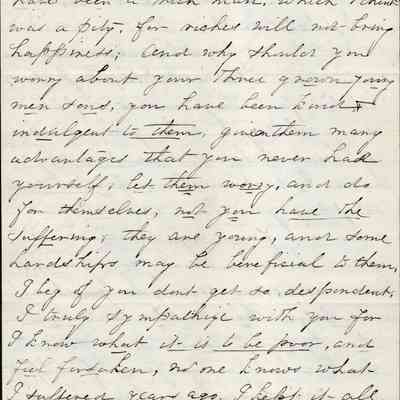 have been a rich man, which I think
was a pity, for riches will not bring
happiness; and why should you
worry about your three grown young
men sons, you have been kind &
indulgent to them, given them many
advantages that you never had
yourself; let them worry, and do
for themselves, not you have the
suffering; they are young, and some
hardships may be beneficial to them,
I beg of you dont get so despondent,
I truly sympathize with you for
I know what it is to be poor, and
feel forsaken, no one knows what
I suffered years ago, I kept it all